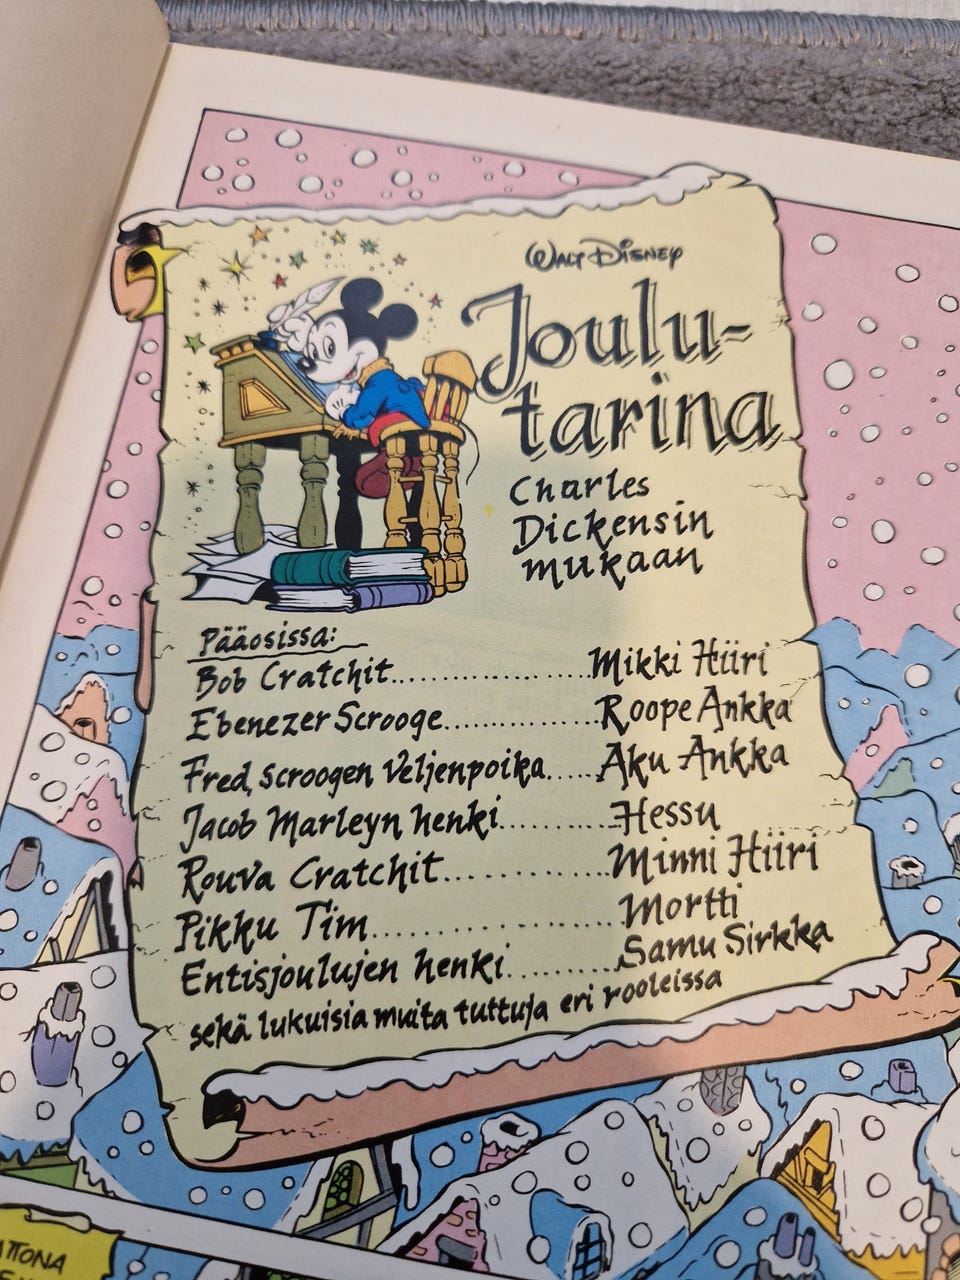 Walt Disney
Joulu-
tarina
Charles
Dickensin
mukaan
Pääosissa:
Bob Cratchit................Mikki Hiiri
Ebenezer Scrooge............Roope Ankka
Fred, Scroogen veljenpoika.....Aku Ankka
Jacob Marleyn henki..........Hessu
Rouva Cratchit..............Minni Hiiri
Pikku Tim...................Mortti
Entisjoulujen henki.........Samu Sirkka
sekä lukuisia muita tuttuja eri rooleissa